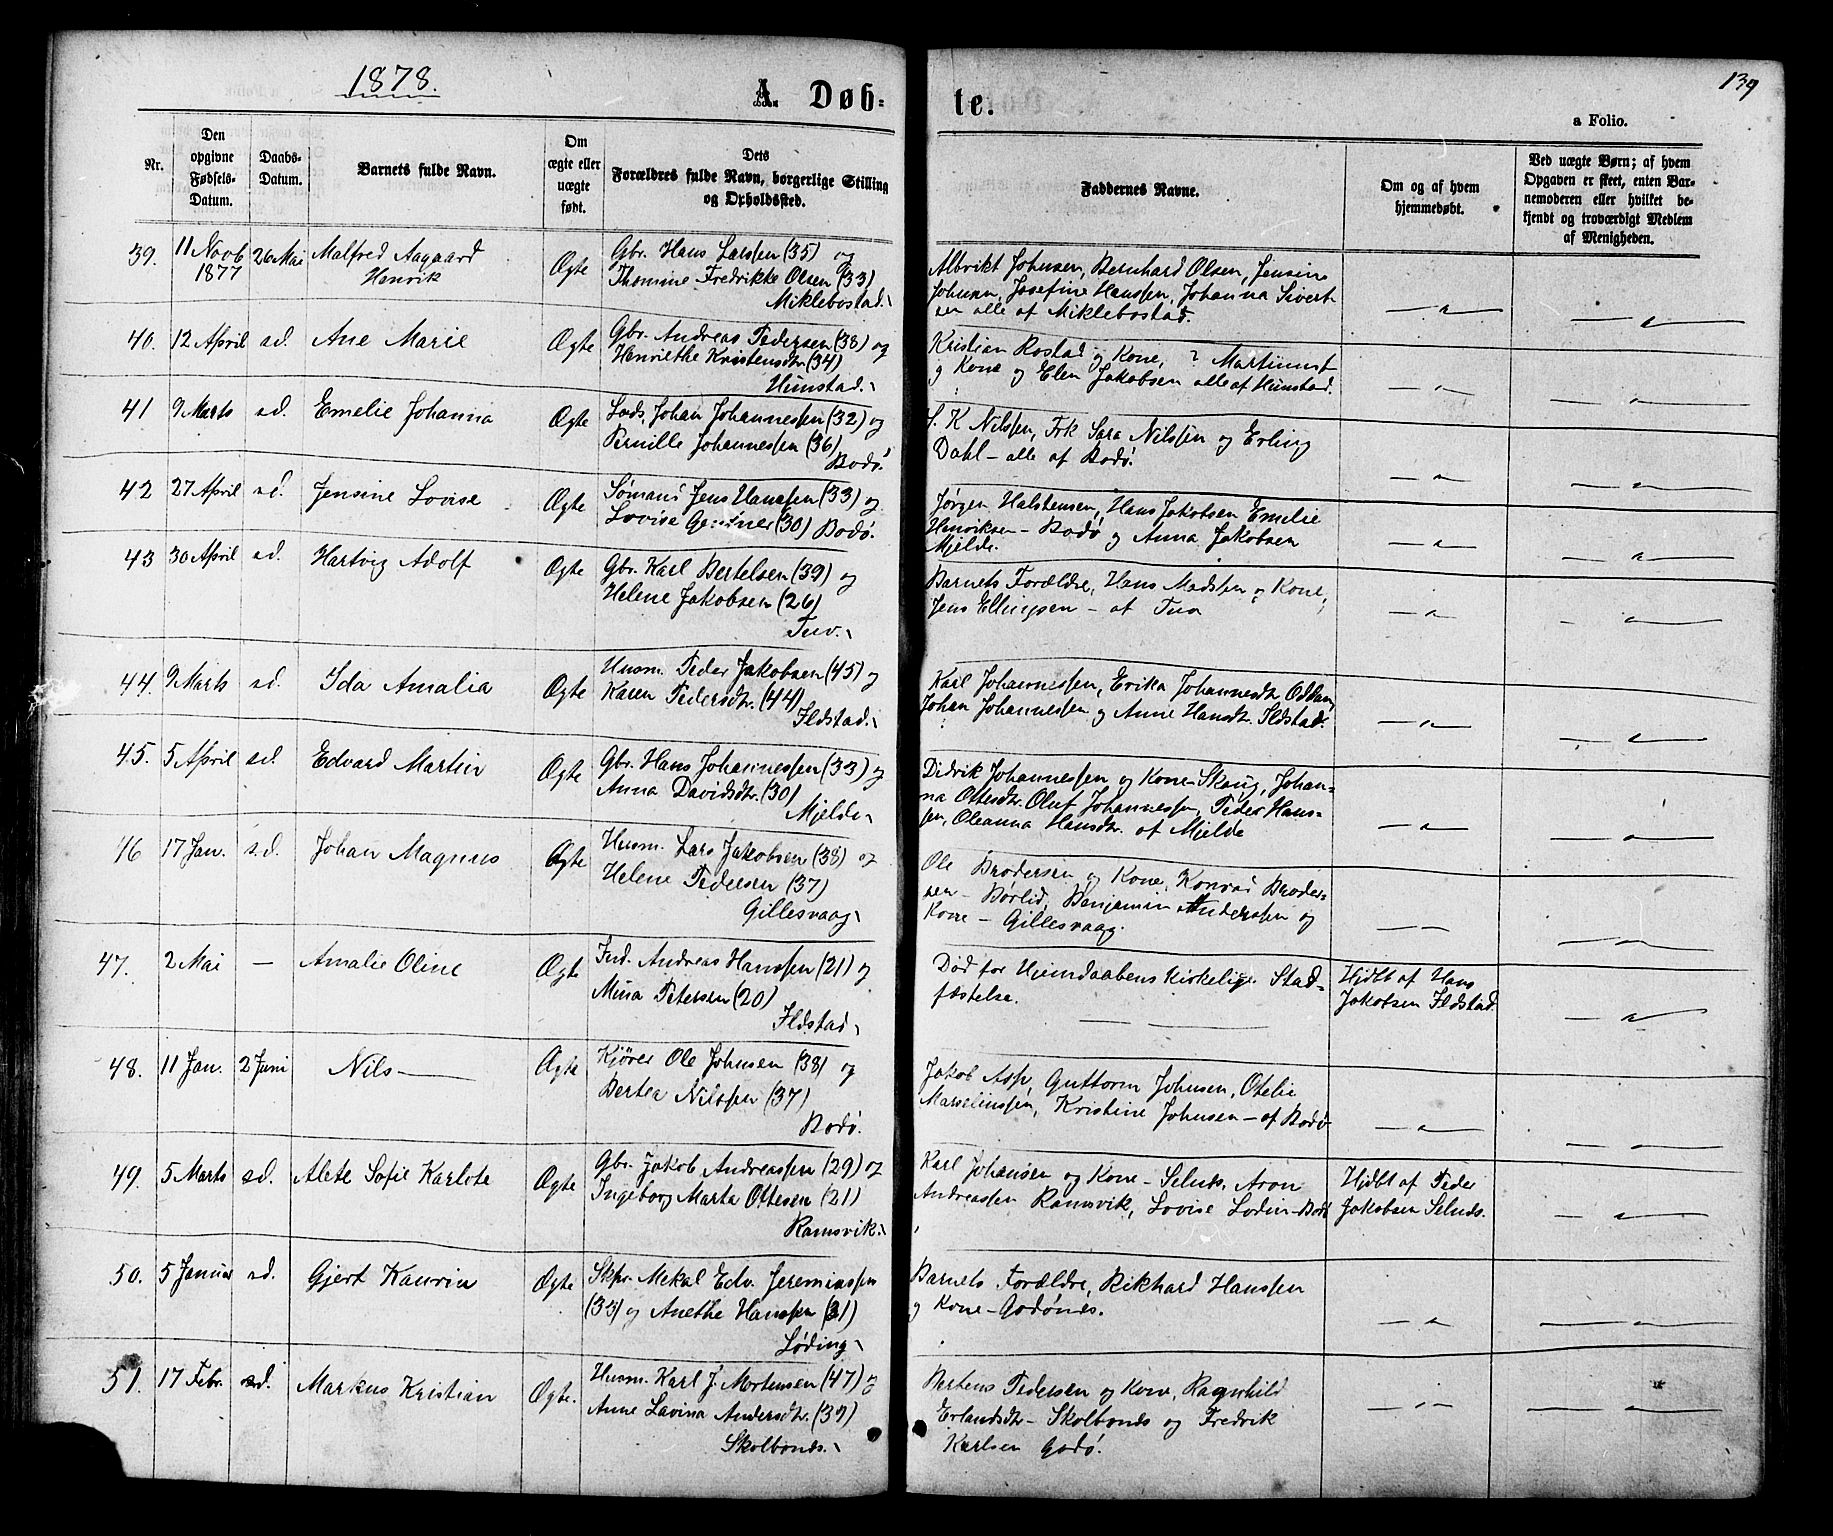 1878.
A Døb=
te.
139
a Folio.
Nr.
Den opgivne Fødsels-Datum.
Daabs-Datum.
Barnets fulde Navn.
Om ægte eller uægte født.
Dets Forældres fulde Navn, borgerlige Stilling og Opholdssted.
Faddernes Navne.
Om og af hvem hjemmedøbt.
Ved uægte Børn; af hvem Opgaven er skeet, enten Barnemoderen eller hvilket bekjendt og troværdigt Medlem af Menigheden.
39. 11 Novb 1877 26 Mai Malfred Aagaard Henrik Ægte
Gbr. Hans Larssen (35) og
Thomine Fredrikke Olsen (33)
Miklebostad.
Albrikt Johnsen, Bernhard Olsen, Jensine
Johnsen, Josefine Hanssen, Johanna Sivert
sen alle af Miklebostad.
— " — — " —
40. 12 April sd. Ane Marie Ægte
Gbr. Andreas Pedersen (38) og
Henriethe Kristensdtr (34)
Hunstad.
Kristian Rostad og Kone, ? Martinus
og Kone og Elen Jakobsen alle af Hunstad.
— " — — " —
41 9 Marts sd. Emelie Johanna Ægte
Lods. Johan Johannessen (32) og
Pernille Johannessen (36)
Bodø.
S. K Nilssen, Frk Sara Nilssen og Erling
Dahl — alle af Bodø.
— " — — " —
42 27 April sd. Jensine Lovise Ægte
Sømand Jens Hanssen (33) og
Lovise (30) Bodø.
Jørgen Halstensen, Hans Jakobsen Emelie
Henriksen — Bodø og Anna Jakobsen
Mjelde.
— " — — " —
43 30 April sd. Hartvig Adolf Ægte
Gbr. Karl Bertelsen (39) og
Helene Jakobsen (26)
Tuv.
Barnets Forældre, Hans Madssen og Kone,
Jens Ellingsen — af Tuv
— " — — " —
44. 9 Marts sd. Ida Amalia Ægte
Husm. Peder Jakobsen (45) og
Karen Pedersdtr. (44)
Ildstad.
Karl Johannessen, Erika Johannesdtr Oddan,
Johan Johannessen og Anne Hansdtr. Ildstad.
— " — — " —
45. 5 April sd. Edvard Martin Ægte
Gbr. Hans Johannessen (33) og
Anna Davidsdtr. (30)
Mjelde.
Didrik Johannessen og Kone — Skaug, Johan=
na Ottesdtr. Oluf Johannessen, Peder Hans=
sen, Oleanna Hansdtr. af Mjelde
— " — — " —
46 17 Jan. s.d. Johan Magnus Ægte
Husm. Lars Jakobsen (38) og
Helene Pedersen (37)
Gillesvaag.
Ole Brodersen og Kone, Konrad Broder=
sen — Børlid, Benjamin Anderssen og
Kone — Gillesvaag.
— — — " —
47. 2 Mai — Amalie Oline Ægte
Ind. Andreas Hanssen (21) og
Mina Petersen (20)
Ildstad.
Død før Hjemdaabens kirkelige Stad=
fæstelse.
— —
Hjdbt af Hans
Jakobsen Ildstad.
— " —
48. 11 Jan. 2 Juni Nils — Ægte
Kjører Ole Johnsen (38) og
Bertea Nilssen (37)
Bodø.
Jakob Asp, Guttorm Johnsen, Otelie
Marseliussen, Kristine Johnsen — af Bodø
— " — — " —
49. 5 Marts sd. Alete Sofie Karlote Ægte
Gbr. Jakob Andreassen (29) og
Ingeborg Marta Ottesen (21)
Ramsvik.
Karl Johansen og Kone — Selnes. Aron
Andreassen Ramsvik, Lovise Lodin — Bodø
Hjdbt af Peder
Jakobsen Selnes.
— " —
50. 5 Januar sd. Gjert Kaurin Ægte
Skpr. Mekal Edv. Jeremiassen
(33) og Anethe Hanssen (31)
Løding.
Barnets Forældre, Rikhard Hanssen
og Kone — Godønes.
— " — — " —
51. 17 Febr. sd. Markus Kristian Ægte.
Husm. Karl J. Mortensen (47) og
Anne Lavina Andersdtr. (39)
Skolbones.
Bertens Pedersen og Kone, Ragnhild
Erlandsdtr — Skolbones og Fredrik
Karlsen Godø.
— " — — " —